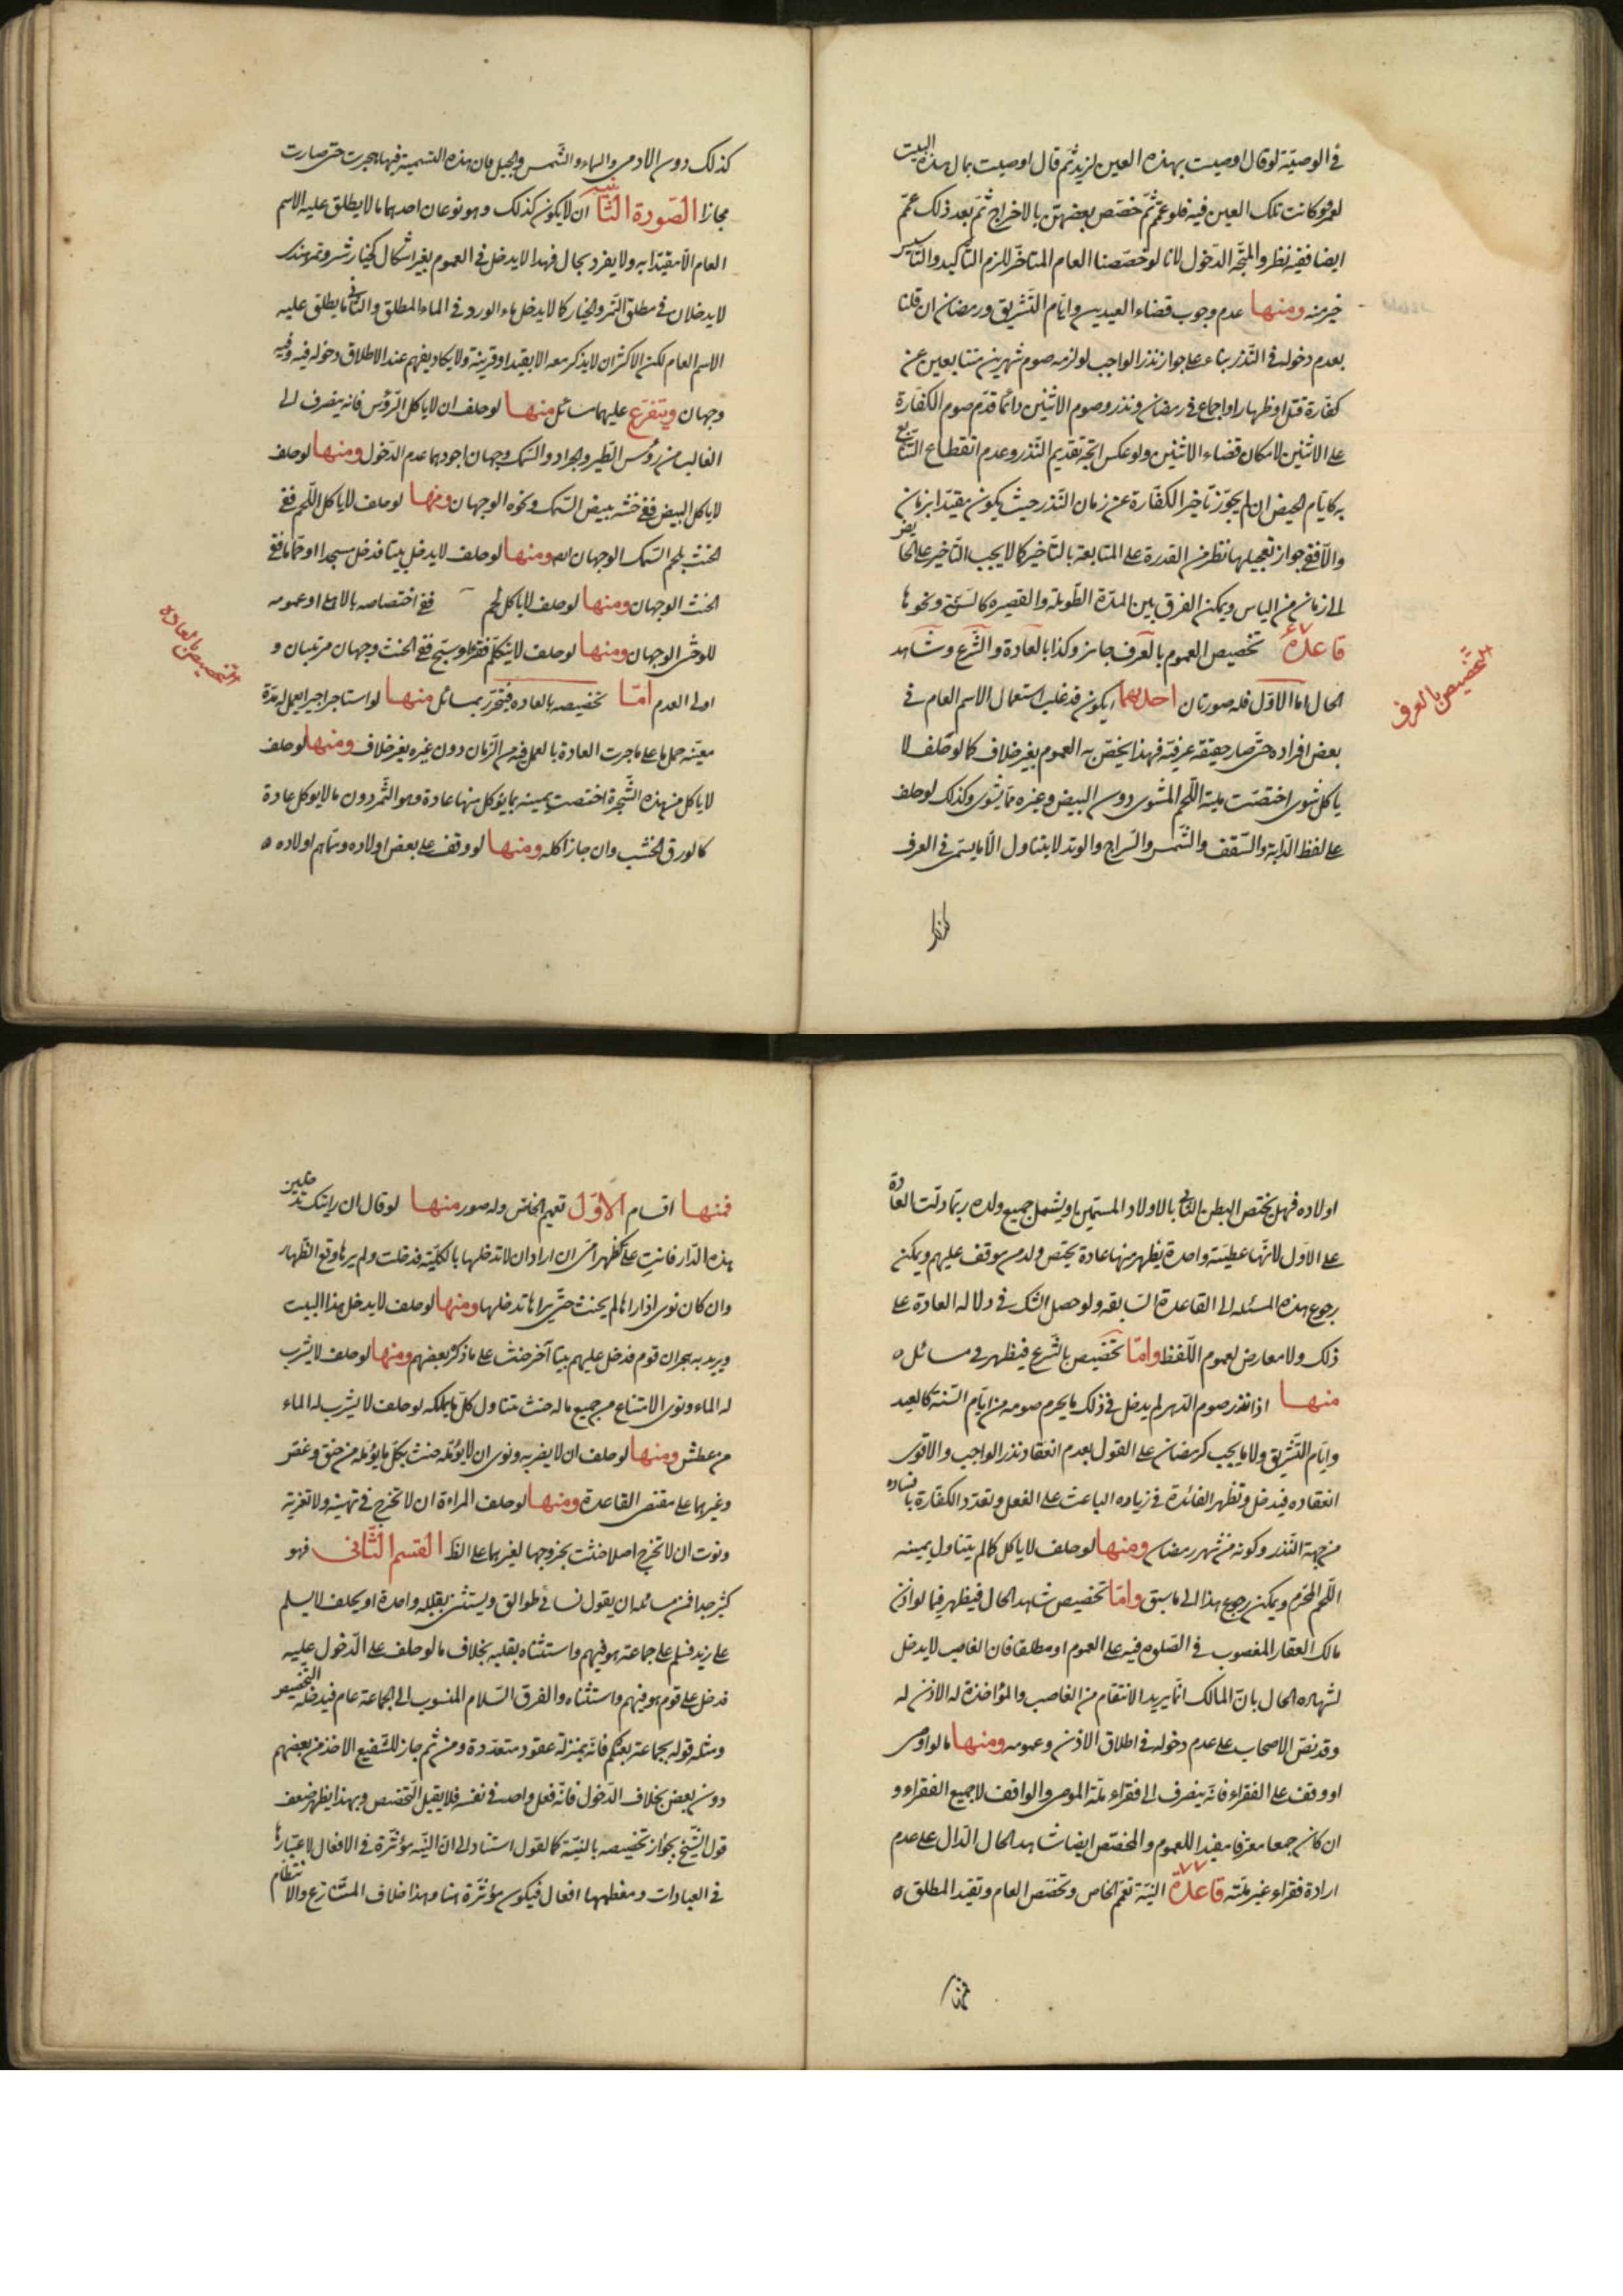 في الوصية لو قال اوصيت بهذه العين لزيد ثم قال اوصيت بمال هذه البيت
لعمرو وكانت تلك العين فيه فلو عمم ثم خصص بعضهن بالاخراج ثم بعد ذلك عمم
ايضا ففيه نظر والمتجه الدخول لانا لو خصصنا العام المتاخر للزم التاكيد والتاسيس
خير منه ومنها عدم وجوب قضاء العيدين وايام التشريق ورمضان ان قلنا
بعدم دخوله في النذر بناء على جواز نذر الواجب لو لزمه صوم شهرين متتابعين عن
كفارة قتل او ظهار او اجماع في رمضان ونذر وصوم الاثنين دائما قدم صوم الكفارة
على الاثنين لامكان قضاء الاثنين ولو عكس اتجه تقديم النذر وعدم انقطاع التتابع
به كايام الحيض ان لم يجوز تاخير الكفارة عن زمان النذر حيث يكون مقيدا بزمان
والا ففي جواز تعجيلها نظر من القدرة على المتابعة بالتاخير كما لا يجب التاخير على الحائض
الى زمان من الياس ويمكن الفرق بين المدة الطويلة والقصيره كالسنة ونحوها
قاعدة ٧٦ تخصيص العموم بالعرف جايز وكذا بالعادة والشرع وشاهد
الحال اما الاول فله صورتان احديهما يكون قد غلب استعمال الاسم العام في
بعض افراده حتى صار حقيقة عرفية فهذا يخص به العموم بغير خلاف كما لو حلف لا
ياكل شوى اختصت يمينه اللحم المشوى دون البيض وغيره مما يشوى وكذلك لو حلف
على لفظ الدابة والسقف والشمس والسراج والوتد لا يتناول الا ما يسمى في العرف
كذلك
التخصيص بالعرف
كذلك دون الادمى والسماء والشمس والجبل فان هذه التسمية فيها هجرت حتى صارت
مجازا الصورة الثانية ان لا يكون كذلك وهو نوعان احدهما ما لا يطلق عليه الاسم
العام الا مقيدا به ولا يفرد بحال فهذا لا يدخل في العموم بغير اشكال كخيار شنبر وتمر هندى
لا يدخلان في مطلق التمر والخيار كما لا يدخل ماء الورد في الماء المطلق والثانى ما يطلق عليه
الاسم العام لكن الاكثر ان لا يذكر معه الا بقيد او قرينة ولا يكاد يفهم عند الاطلاق دخوله فيه وفيه
وجهان ويتفرع عليهما مسائل منها لو حلف ان لا ياكل الرؤس فانه ينصرف الى
الغالب من رؤس الطير والجراد والسمك وجهان اجودهما عدم الدخول ومنها لو حلف
لا ياكل البيض ففي حنثه ببيض السمك ونحوه الوجهان ومنها لو حلف لا ياكل اللحم ففي
الحنث بلحم السمك الوجهان ايضا ومنها لو حلف لا يدخل بيتا فدخل مسجدا او حماما ففي
الحنث الوجهان ومنها لو حلف لا ياكل لحم ففي اختصاصه بالاهلى او عمومه
للوحشى الوجهان ومنها لو حلف لا يتكلم فقرا او سبح ففي الحنث وجهان مرتبان و
اولى العدم اما تخصيصه بالعاده فيتحرر بمسائل منها لو استاجر اجيرا يعمل له مدة
معينه حمل ما على ما جرت العادة بالعمل فيه من الزمان دون غيره بغير خلاف ومنها لو حلف
لا ياكل من هذه الشجرة اختصت يمينه بما يؤكل منها عادة وهو الثمر دون ما لا يوكل عادة
كالورق الخشب وان جاز اكله ومنها لو وقف على بعض اولاده وسماهم اولاده ٥
التخصيص بالعاده
اولاده فهل يختص البطن الثانى بالاولاد المسمين او يشمل جميع ولده ربما دلت العادة
على الاول لانها عطيته واحدة يظهر منها عادة يختص ولد من وقف عليهم ويمكن
رجوع هذه المسئله الى القاعدة السابقه ولو حصل الشك في دلاله العادة على
ذلك ولا معارض لعموم اللفظ واما تخصيص بالشرع فيظهر في مسائل ٥
منها اذا نذر صوم الدهر لم يدخل في ذلك ما يحرم صومه من ايام السنة كالعيد
وايام التشريق ولا ما يجب كرمضان على القول بعدم انعقاد نذر الواجب والاقوى
انعقاده فيدخل وتظهر الفائدة في زياده الباعث على الفعل وتعدد الكفارة بافساده
من جهة النذر وكونه من شهر رمضان ومنها لو حلف لا ياكل كما لم يتناول يمينه
اللحم المحرم ويمكن رجوع هذا الى ما سبق واما تخصيص شاهد الحال فيظهر فيما لو اذن
مالك العقار المغصوب في الصلوة فيه على العموم او مطلقا فان الغاصب لا يدخل
لشهاده الحال بان المالك انما يريد الانتقام من الغاصب والمؤاخذة له الاذن له
وقد نص الاصحاب على عدم دخوله في اطلاق الاذن وعمومه ومنها ما لو اوصى
او وقف على الفقراء فانه ينصرف الى فقراء ملة الموصى والواقف لا جميع الفقراء و
ان كان جمعا معرفا مفيدا للعموم والمخصص ايضا شاهد الحال الدال على عدم
ارادة فقراء غير ملته قاعدة ٧٧ النية تعم الخاص وتخصص العام وتقيد المطلق ٥
فمنها
فمنها اقسام الاول تعميم الخاص وله صور منها لو قال ان رايتك تدخلين
هذه الدار فانت على كظهر امى ان اراد ان لا تدخلها بالكلية فدخلت ولم يرها وقع الظهار
وان كان نوى اذا راها لم يحنث حتى يراها تدخلها ومنها لو حلف لا يدخل هذا البيت
ويريد به هجران قوم فدخل عليهم بيتا آخر حنث على ما ذكره بعضهم ومنها لو حلف لا يشرب
له الماء ونوى الامتناع من جميع ماله حنث بتناول كل ما يملكه لو حلف لا يشرب له الماء
من عطش ومنها لو حلف ان لا يضربه ونوى ان لا يؤلمه حنث بكل ما يؤلمه من خنق وعض
وغيرهما على مقتضى القاعدة ومنها لو حلف المراة ان لا تخرج في تهنية ولا تعزية
ونوت ان لا تخرج اصلا حنثت بخروجها لغيرهما على الظ القسم الثانى فهو
كثير جدا فمن مسائله ان يقول نسائى طوالق ويستثنى بقلبه واحدة او يحلف لا يسلم
على زيد فسلم على جماعة هو فيهم واستثناه بقلبه بخلاف ما لو حلف على الدخول عليه
فدخل على قوم هو فيهم واستثناه والفرق السلام المنسوب الى الجماعة عام فيدخله التخصيص
ومثله قوله بجماعة بعتكم فانه بمنزلة عقود متعددة ومن ثم جاز للشفيع الاخذ من بعضهم
دون بعض بخلاف الدخول فانه فعل واحد في نفسه فلا يقبل التخصيص وبهذا يظهر ضعف
قول الشيخ بجواز تخصيصه بالنية كالقول استنادا الى ان النيه مؤثرة في الافعال لاعتبارها
في العبادات ومعظمها افعال فيكون مؤثرة هنا وهذا خلاف المتنازع والانتظام